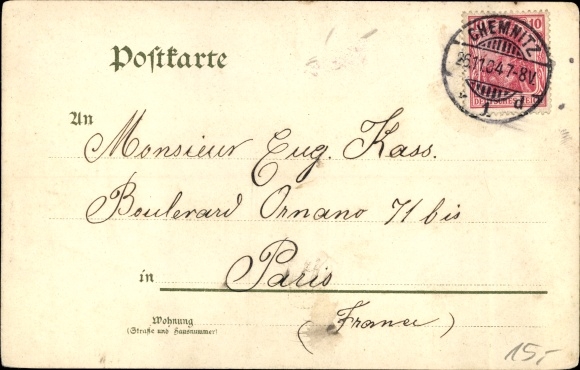 Postkarte
10
CHEMNITZ
26.11.04.7-8V.
J. d
DEUTSCHES REICH
An
Monsieur Eug. Kass.
Boulevard Ornano 71 bis
in Paris
Wohnung
(Straße und Hausnummer)
(France)
15,-